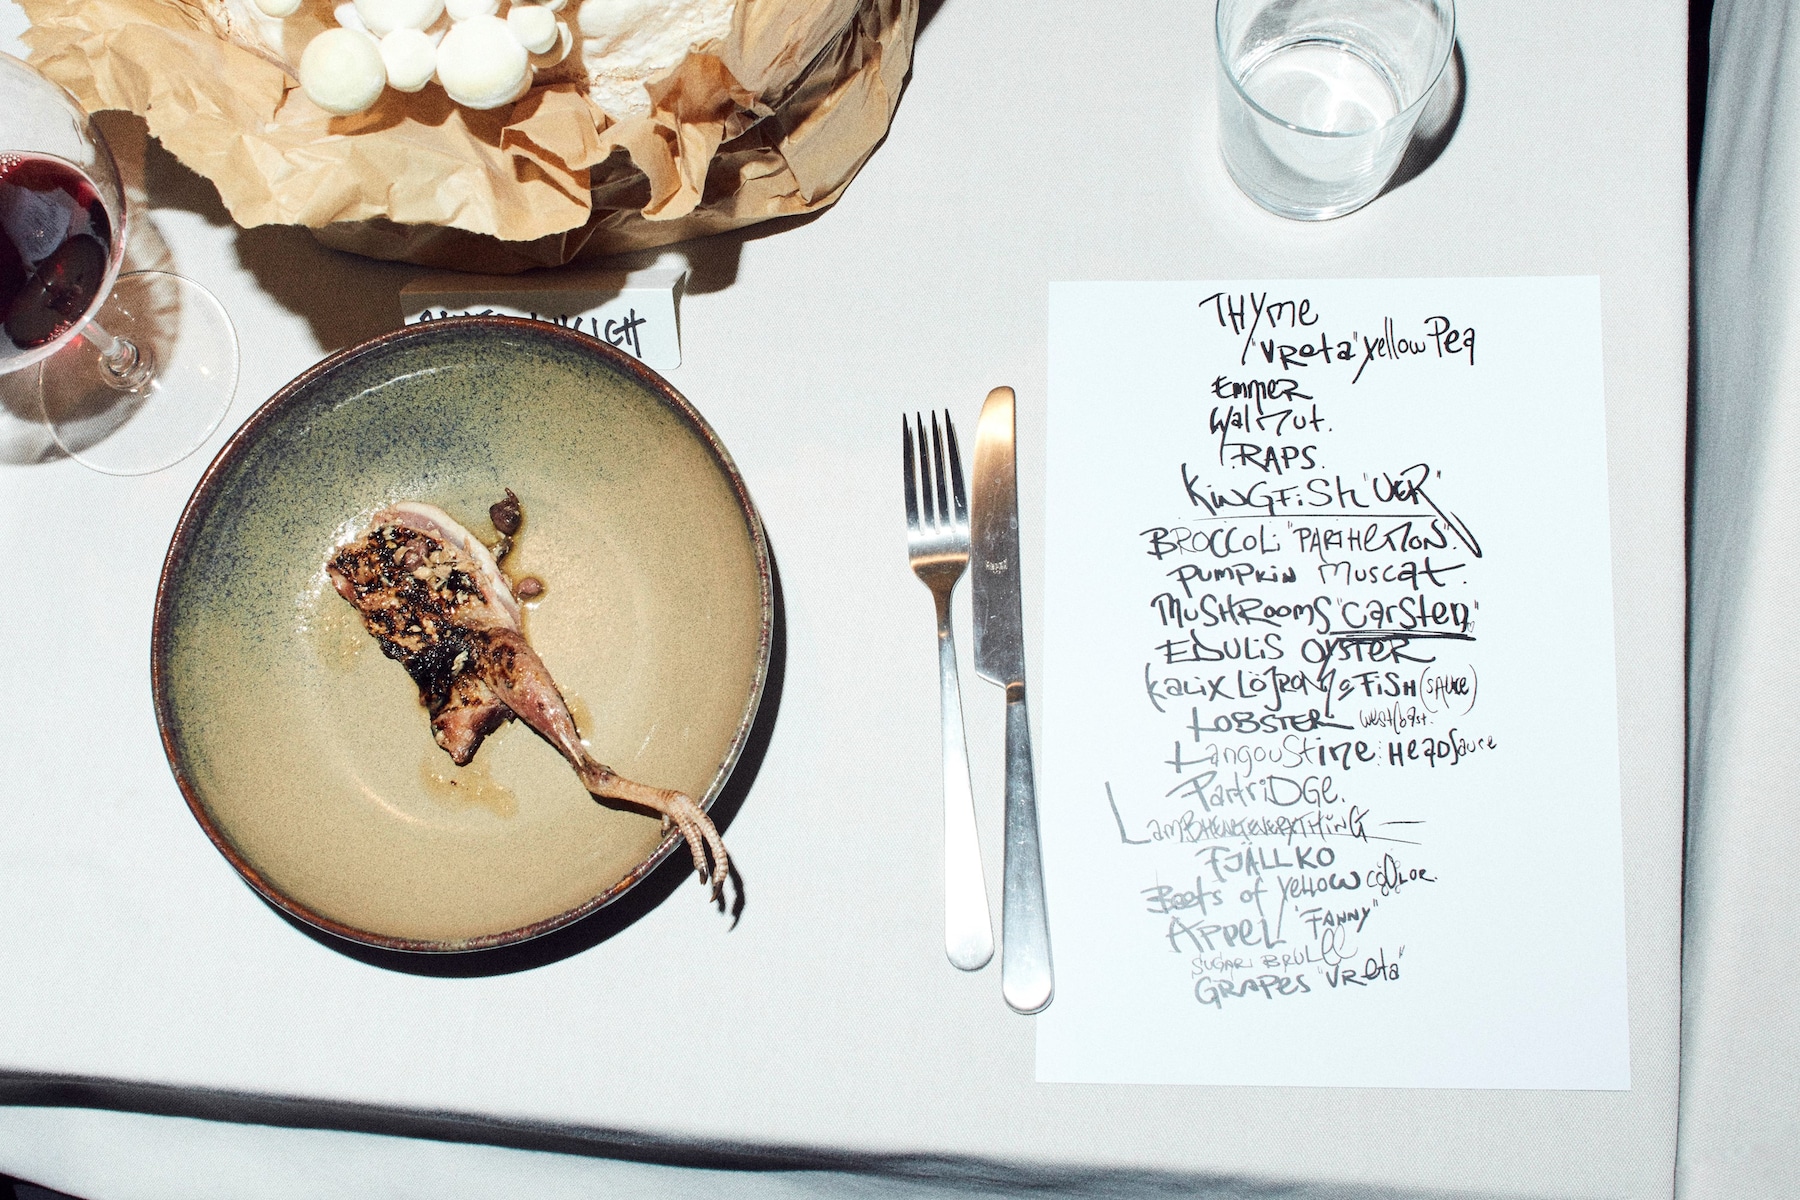 THyme
"Vreta" yellow Pea
Emmer
Walnut.
RAPS.
KiNGFiSH "UER"
BROCCOLi "PARTHENON".
PUMPKiN MUSCAT.
MUSHROOMS "Carsten"
EDULiS OYSTER
KALiX LÖJROM & FiSH (SAUCE)
LOBSTER westcoast.
Langoustine: HEADSauce
PartriDGe.
LAMB EVERYTHiNG
FJÄLLKO
Beets of yellow COULOR.
APPEL "FANNY"
SUGAR BRULEE
GRAPES "Vreta"